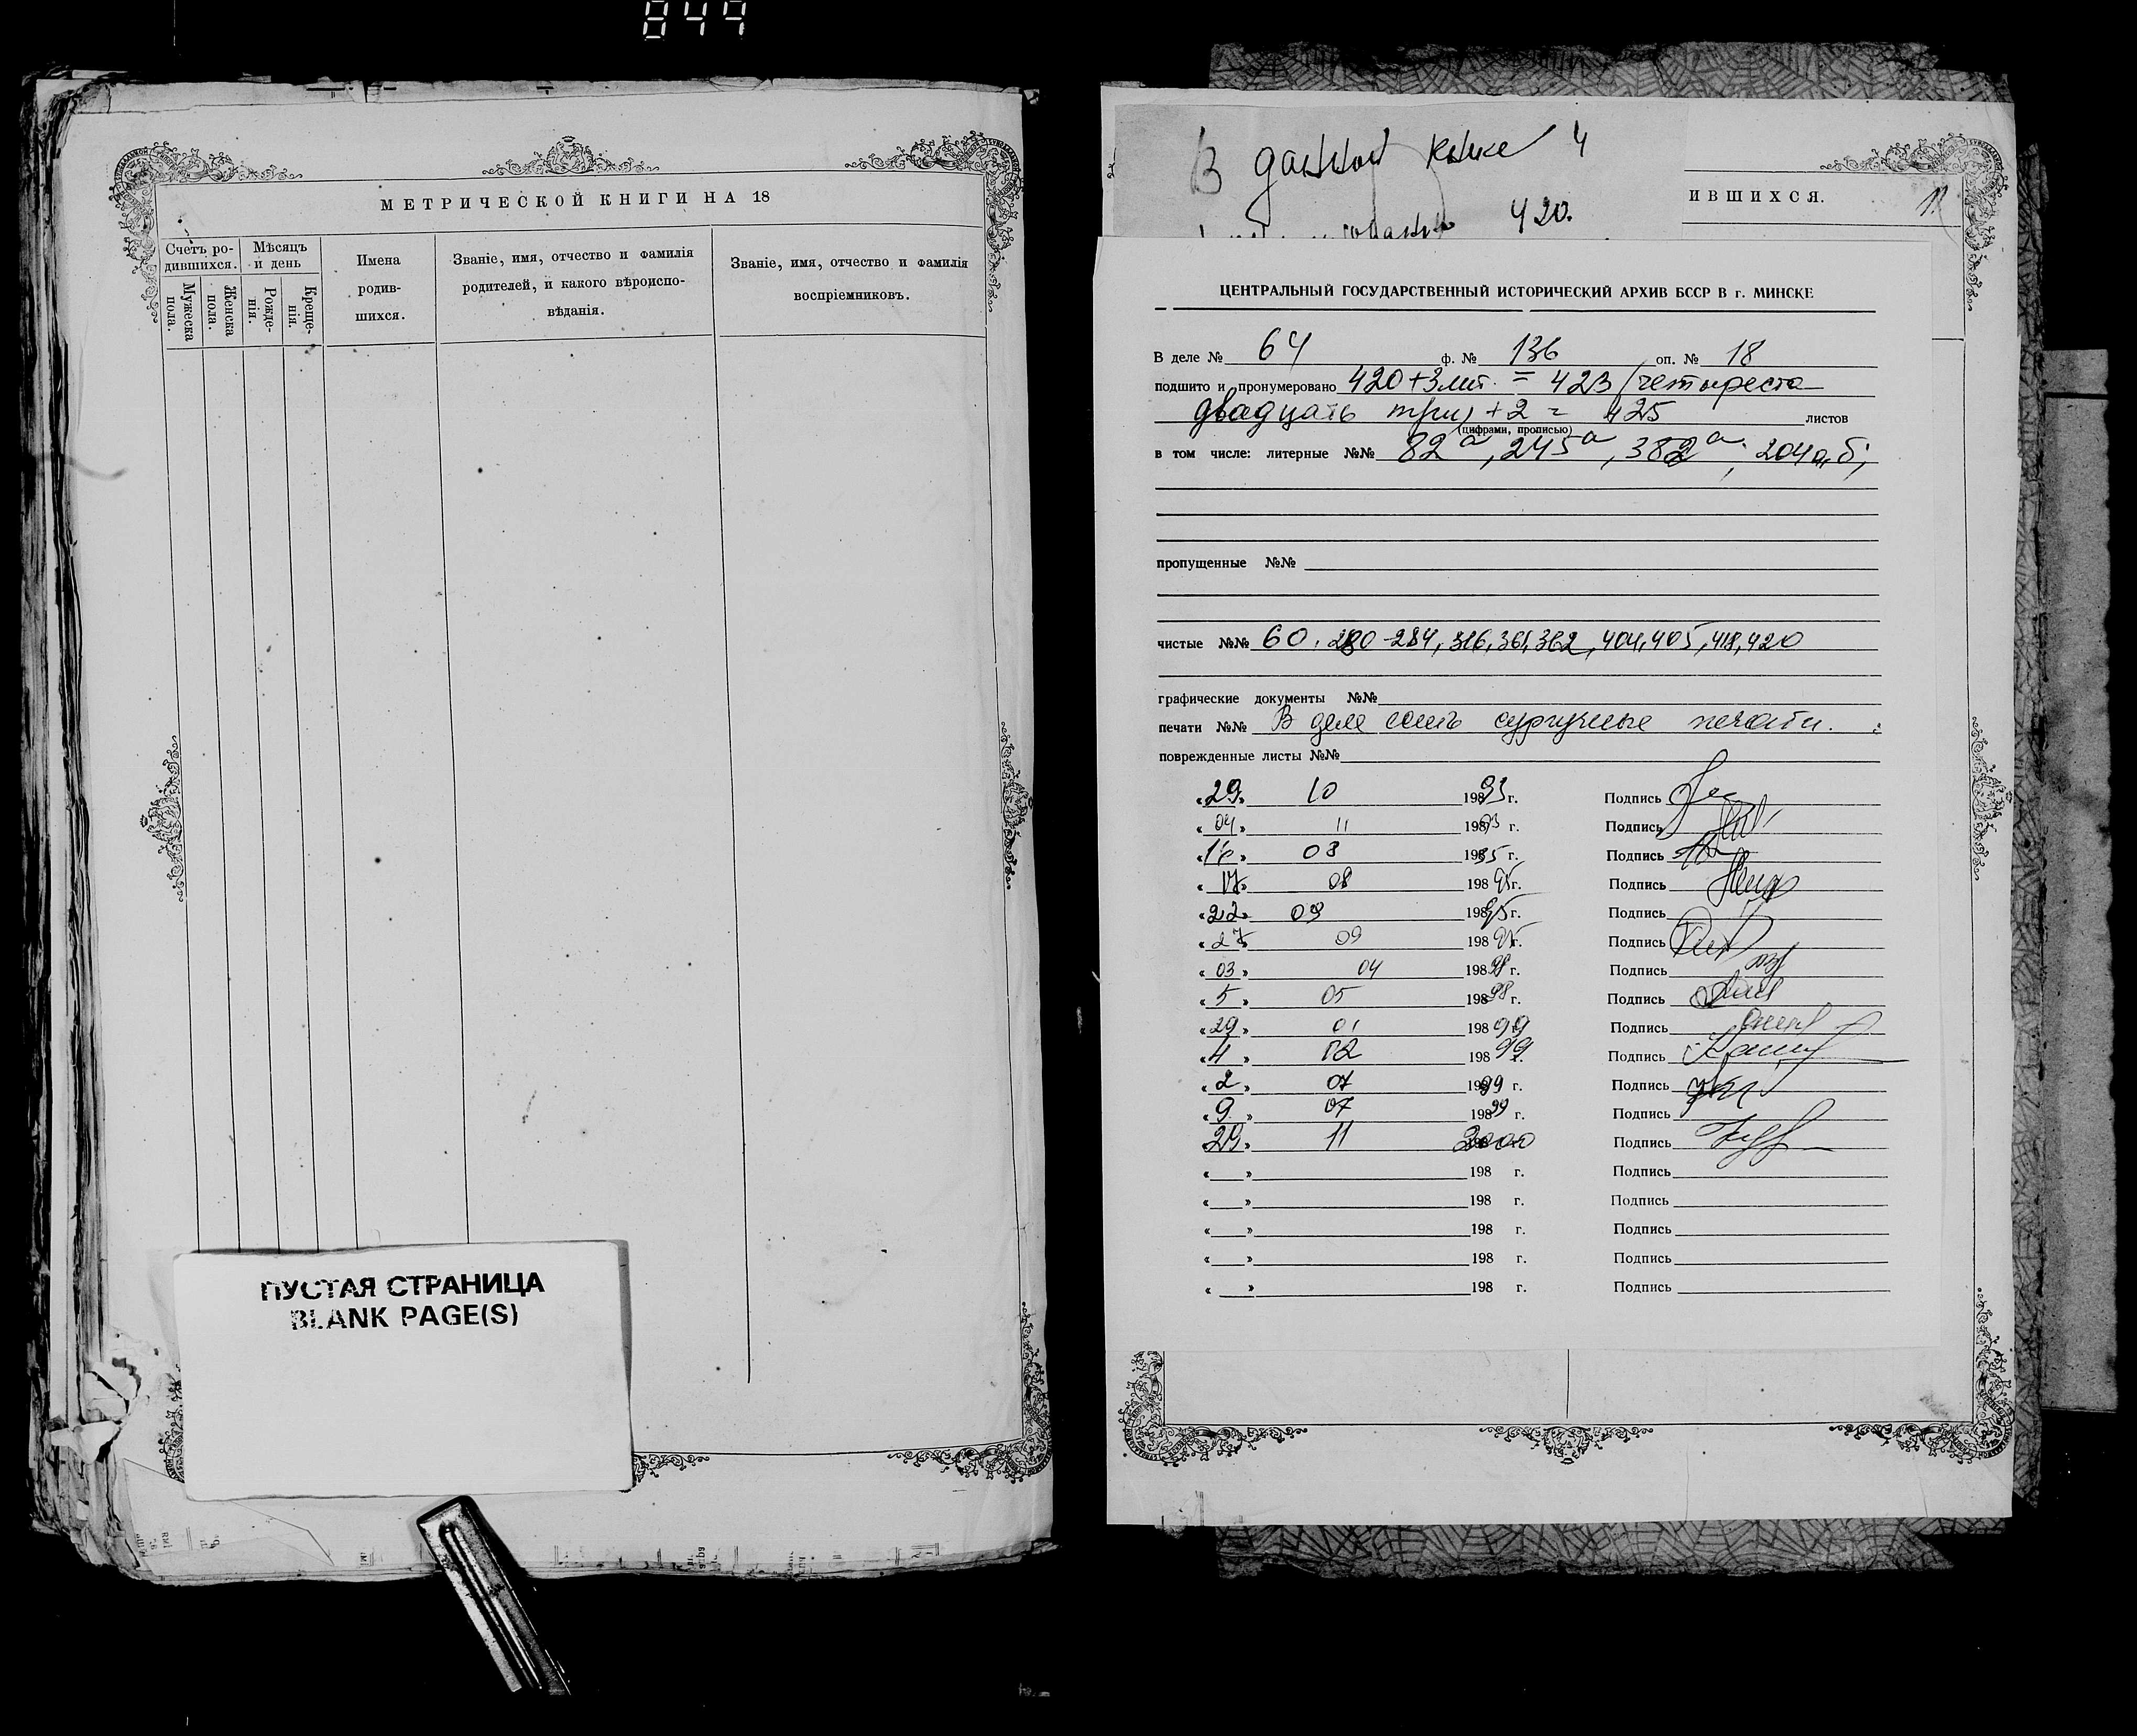 844
МЕТРИЧЕСКОЙ КНИГИ НА 18
Счетъ ро-
дившихся.
Мѣсяцъ
и день
Мужеска
пола.
Женска
пола.
Рожде-
нія.
Креще-
нія.
Имена
родив-
шихся.
Званіе, имя, отчество и фамилія
родителей, и какого вѣроиспо-
вѣданія.
Званіе, имя, отчество и фамилія
воспріемниковъ.
ПУСТАЯ СТРАНИЦА
BLANK PAGE(S)
В данной книге
420.
ИВШИХСЯ.
ЦЕНТРАЛЬНЫЙ ГОСУДАРСТВЕННЫЙ ИСТОРИЧЕСКИЙ АРХИВ БССР В г. МИНСКЕ
В деле № 64 ф. № 136 оп. № 18
подшито и пронумеровано 420+3лит. = 423 (четыреста
двадцать три) +2 = 425 листов
(цифрами, прописью)
в том числе: литерные №№ 82а, 245а, 382а; 204а,б;
пропущенные №№
чистые №№ 60, 280-284, 316, 361, 362, 404, 405, 418, 420
графические документы №№
печати №№ В деле есть сургучные печати.
поврежденные листы №№
«29» 10 1993 г. Подпись
«04» 11 1993 г. Подпись
«16» 08 1995 г. Подпись
«17» 08 198 95 г. Подпись
«22» 09 198 95 г. Подпись
«27» 09 198 95 г. Подпись
«03» 04 198 98 г. Подпись
«5» 05 198 98 г. Подпись
«29» 01 198 99 Подпись
«4» 02 198 99 Подпись
«2» 07 1999 г. Подпись
«9» 07 198 99 г. Подпись
«29» 11 2000 Подпись
« » 198 г. Подпись
« » 198 г. Подпись
« » 198 г. Подпись
« » 198 г. Подпись
« » 198 г. Подпись